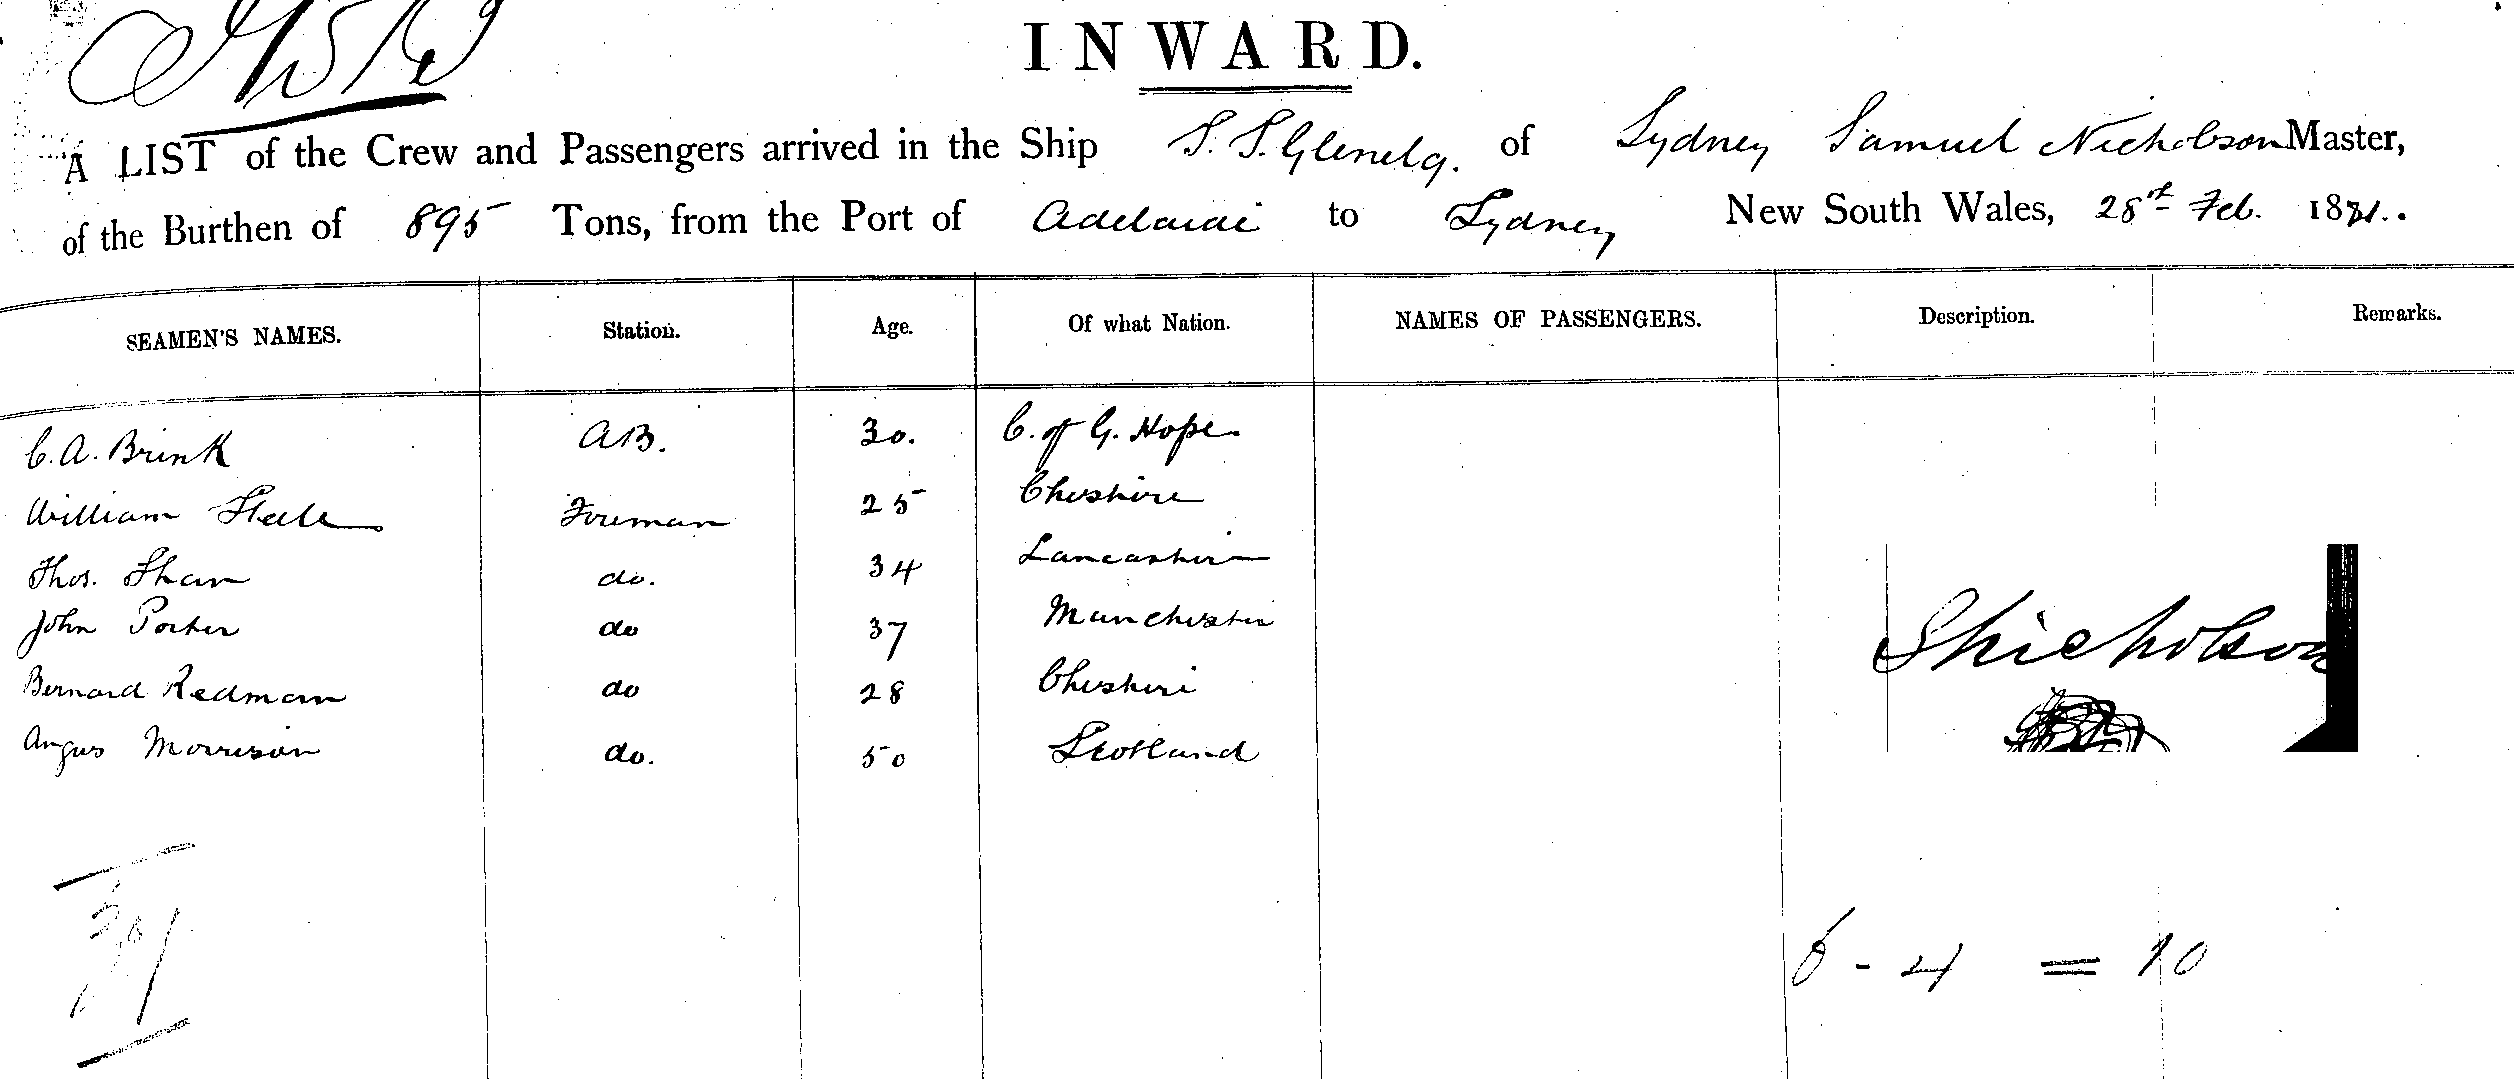 INWARD.
A LIST of the Crew and Passengers arrived in the Ship S.S. Glenelg. of Sydney Samuel Nicholson Master,
of the Burthen of 895 Tons, from the Port of Adelaide to Sydney New South Wales, 28th Feb. 1881.
SEAMEN'S NAMES. Station. Age. Of what Nation. NAMES OF PASSENGERS. Description. Remarks.
C. A. Brink AB. 30. C. of G. Hope
William Steele Foreman 25 Cheshire
Thos. Shaw do. 34 Lancashire
John Porter do 37 Manchester
Bernard Redman do 28 Cheshire
Angus Morrison do. 50 Scotland
SNicholson
6 - 4 = 10